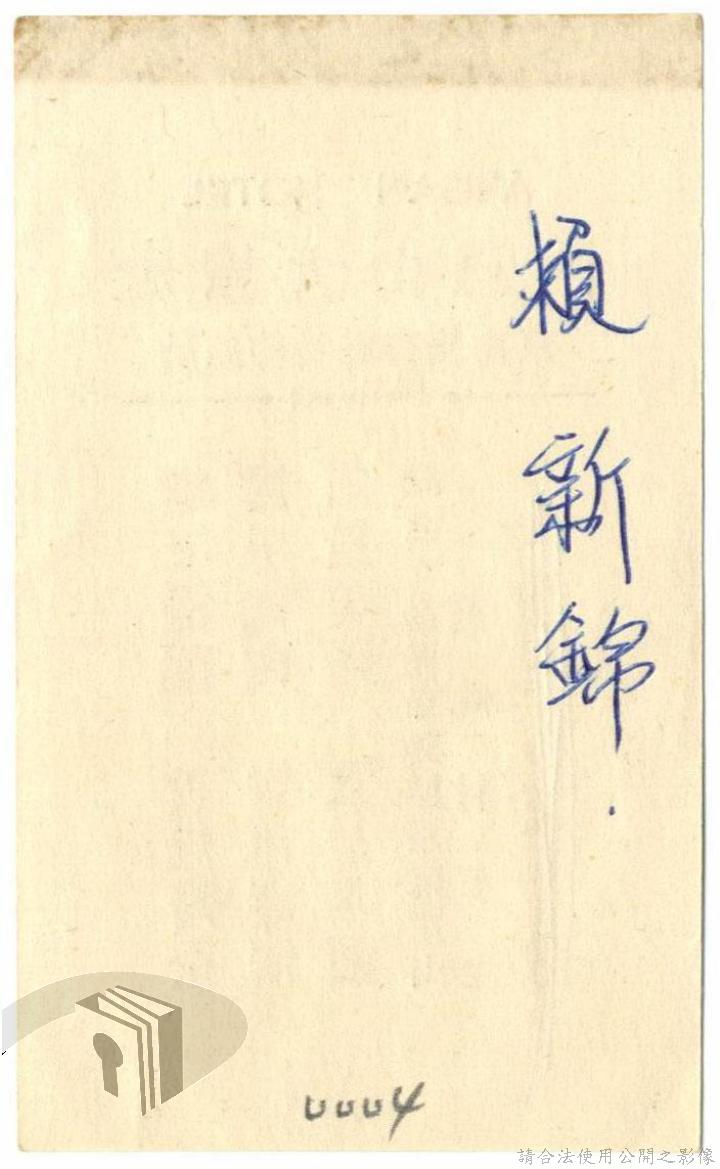 賴新錦.
0004
請合法使用公開之影像